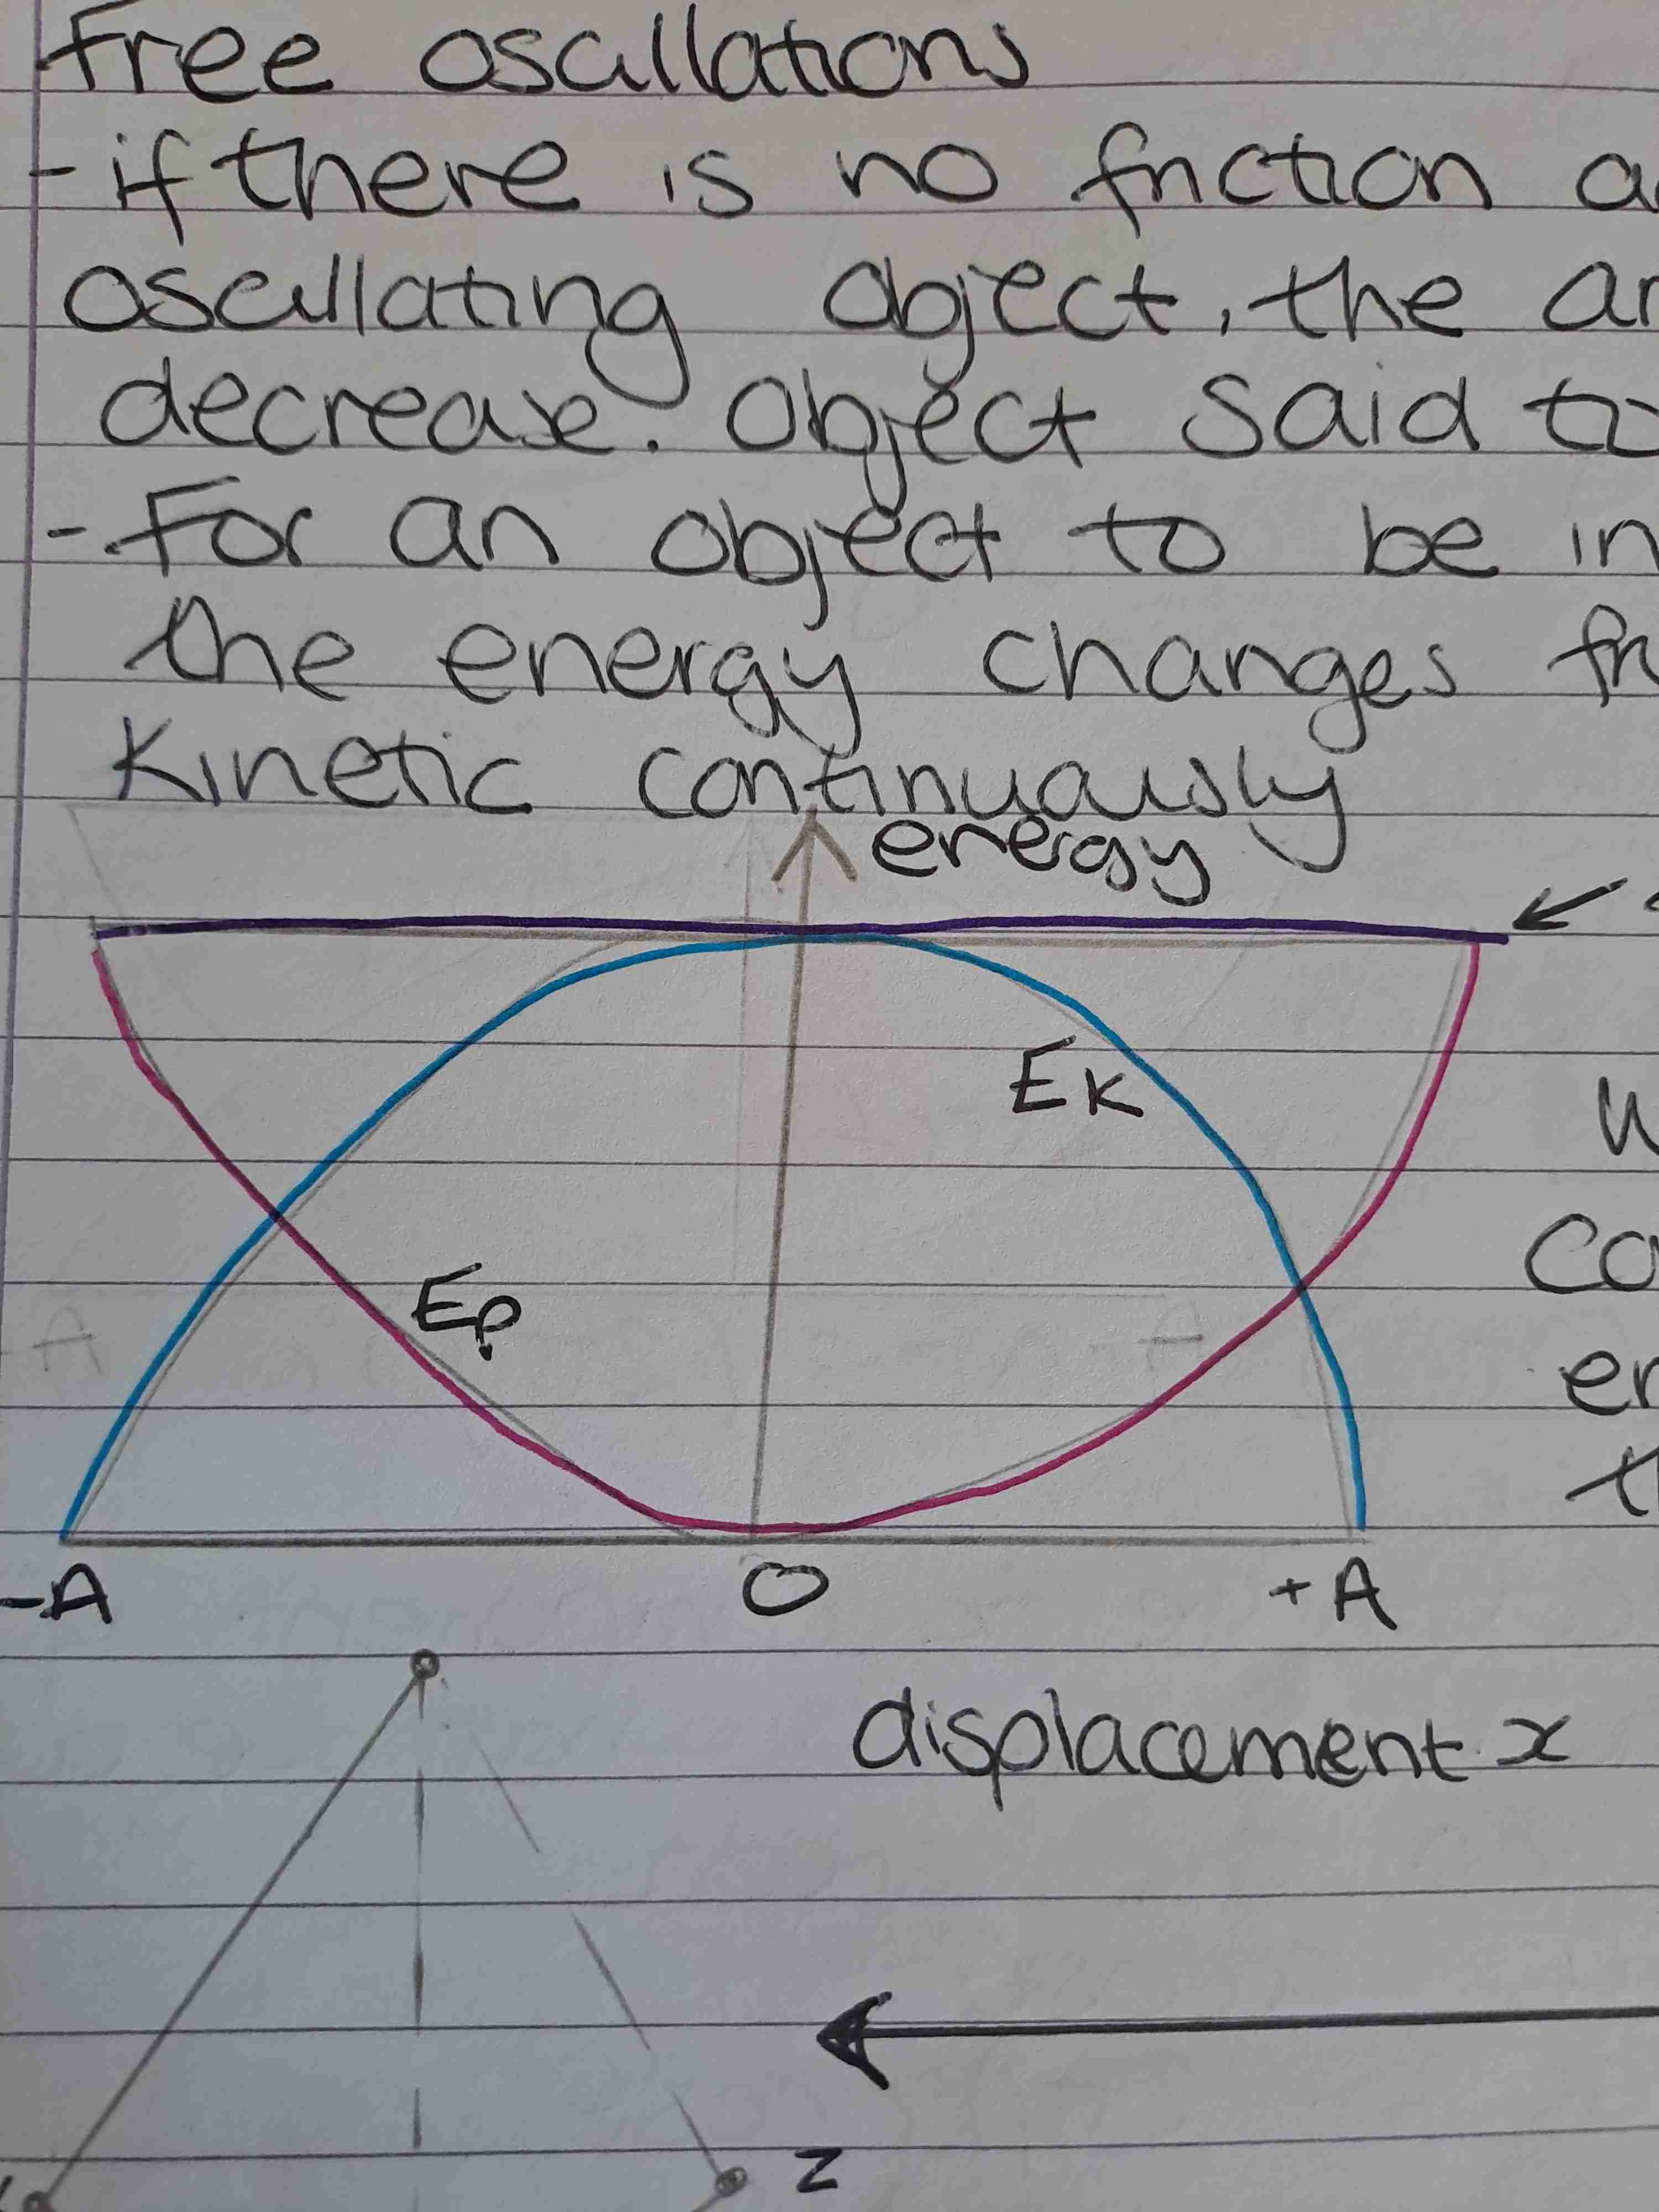 Free oscillations
- if there is no friction
oscillating object, the
decrease. Object said to
- For an object to be in
the energy changes
Kinetic continuously
energy
EK
Ep
-A O +A
displacement x
Z